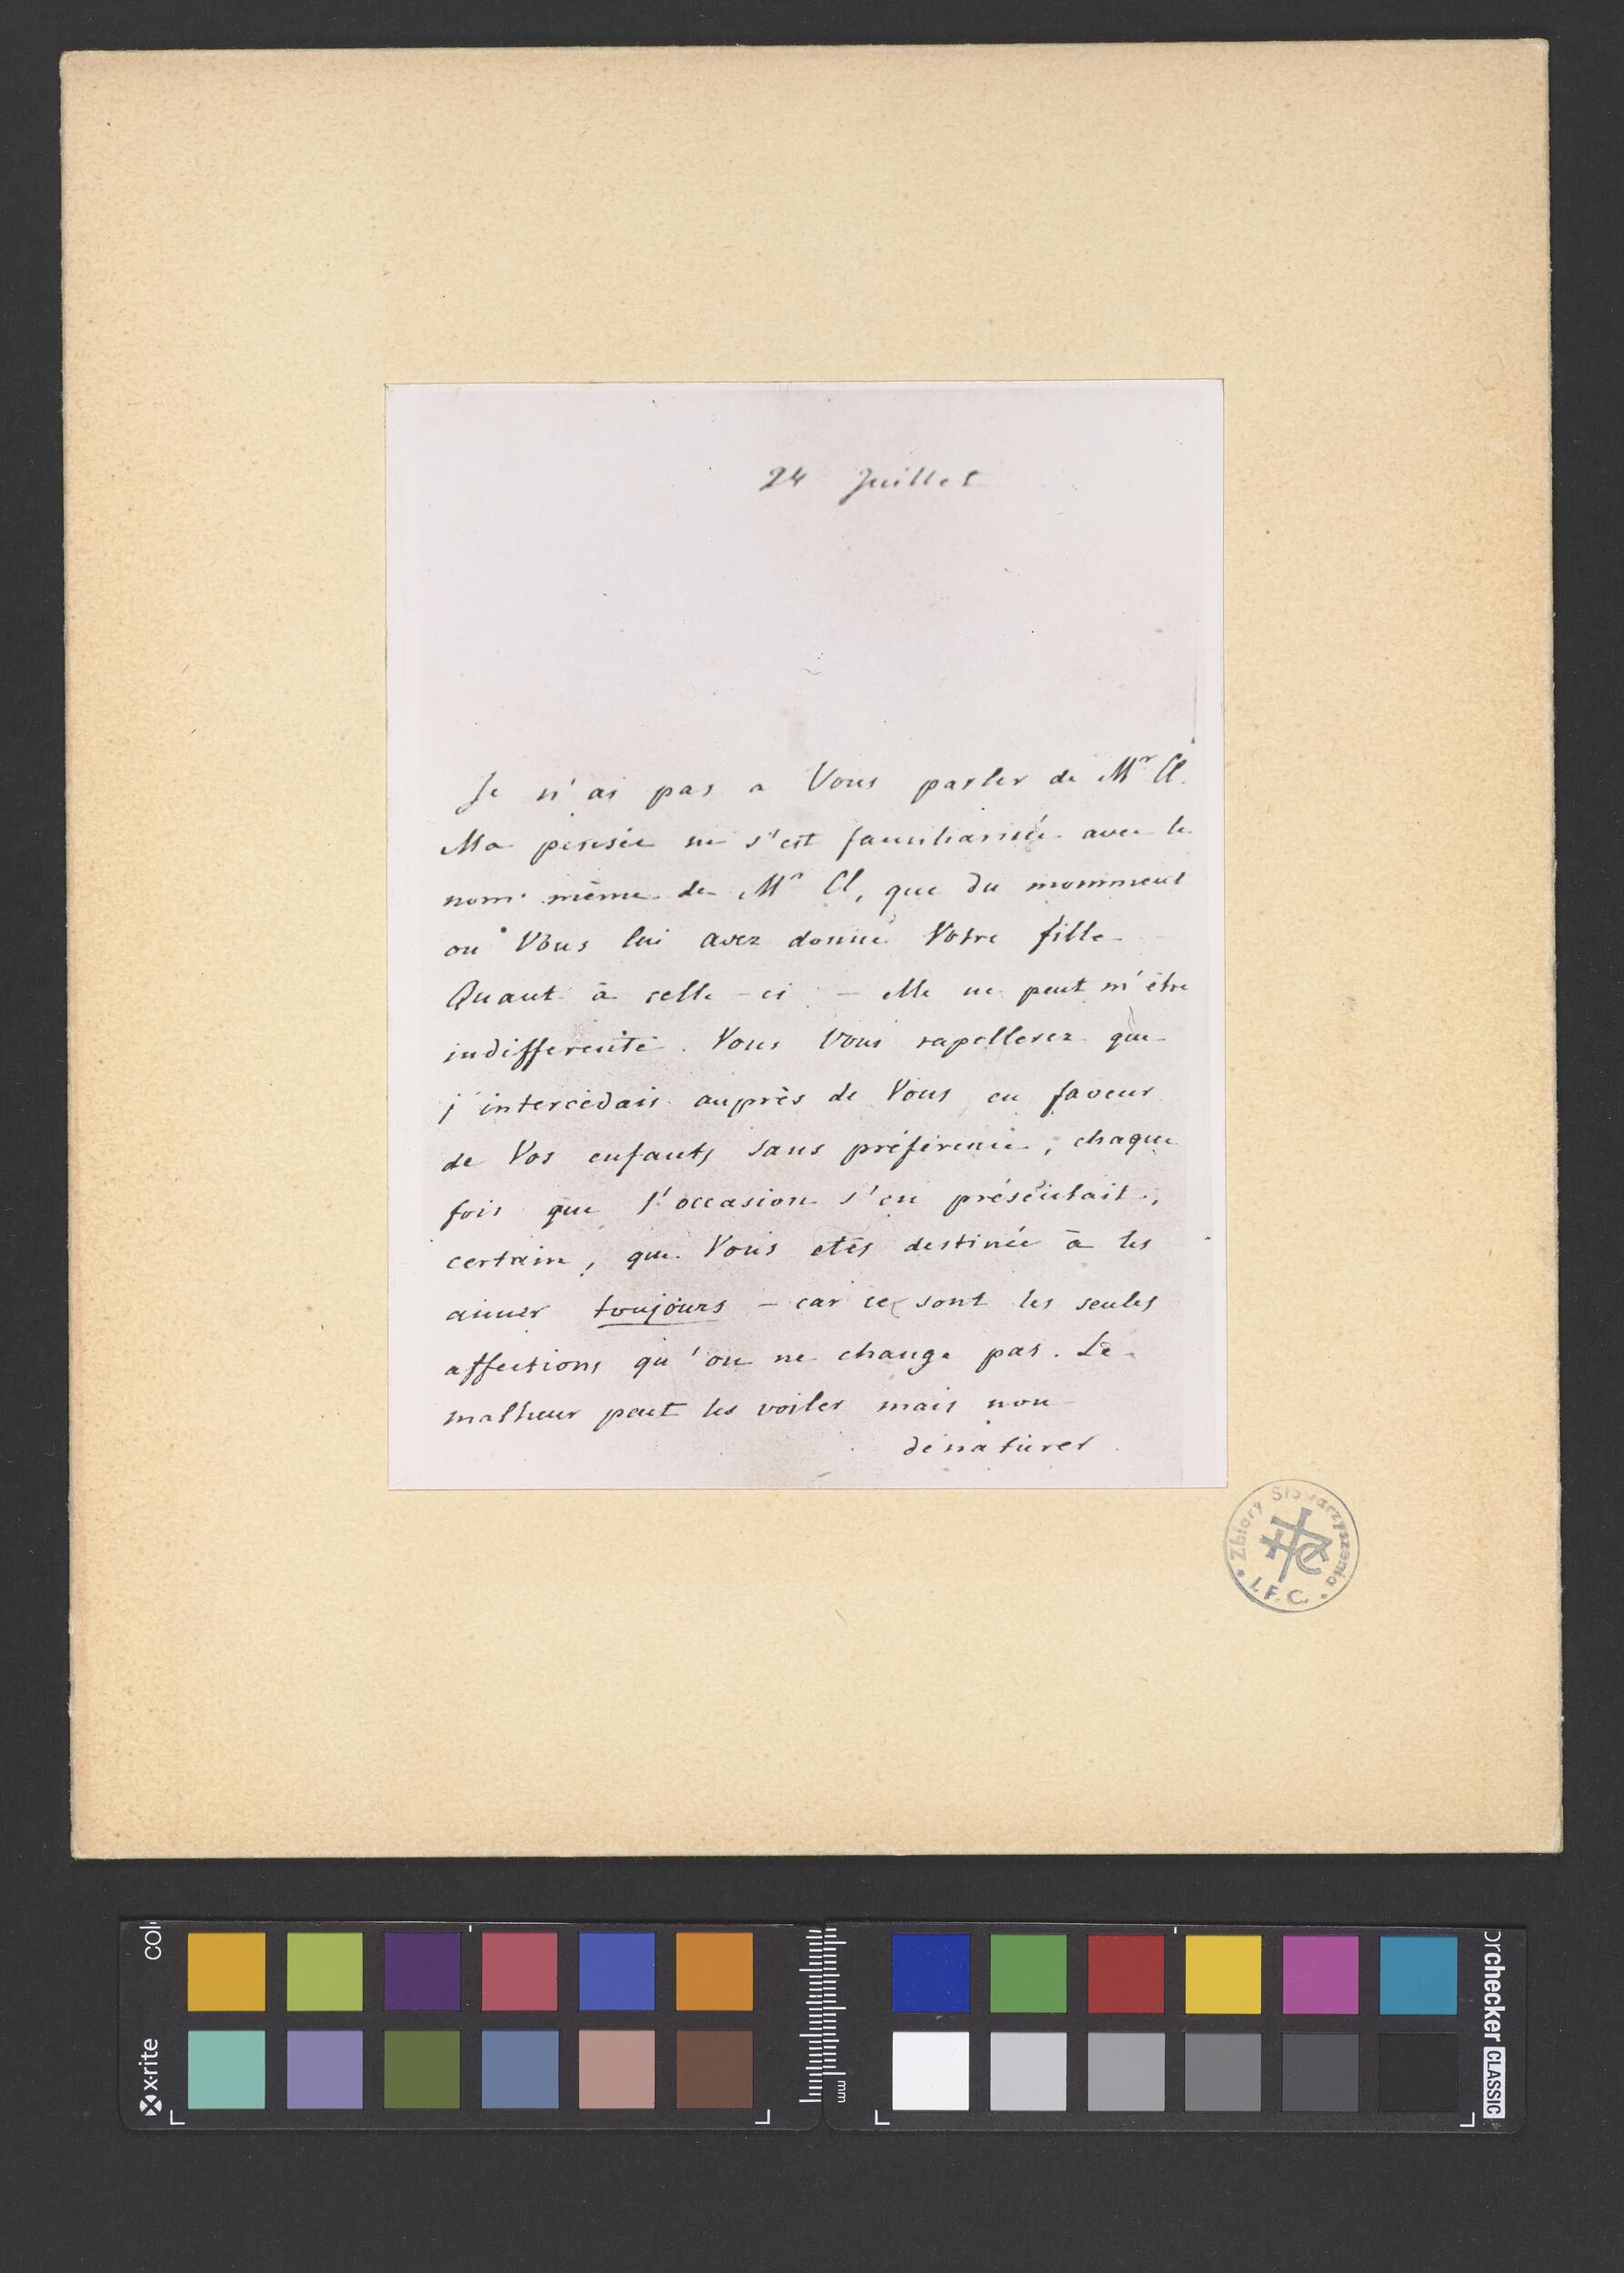 24 Juillet
Je n'ai pas a Vous parler de Mr Cl.
Ma pensée ne s'est familiarisée avec le
nom même de Mr Cl, que du momment
ou Vous lui avez donné Votre fille
Quant à celle-ci – elle ne peut m'être
indifferente. Vous Vous rapellerez que
j'intercédais auprès de Vous en faveur
de Vos enfants sans préférence, chaque
fois que l'occasion s'en présentait,
certain, que Vous etes destinée à les
aimer toujours – car ce sont les seules
affections qu'on ne change pas. Le
malheur peut les voiler mais non
dénaturer
Zbiory Stowarzyszenia
I.F.C.
x-rite
colo
mm
orchecker CLASSIC